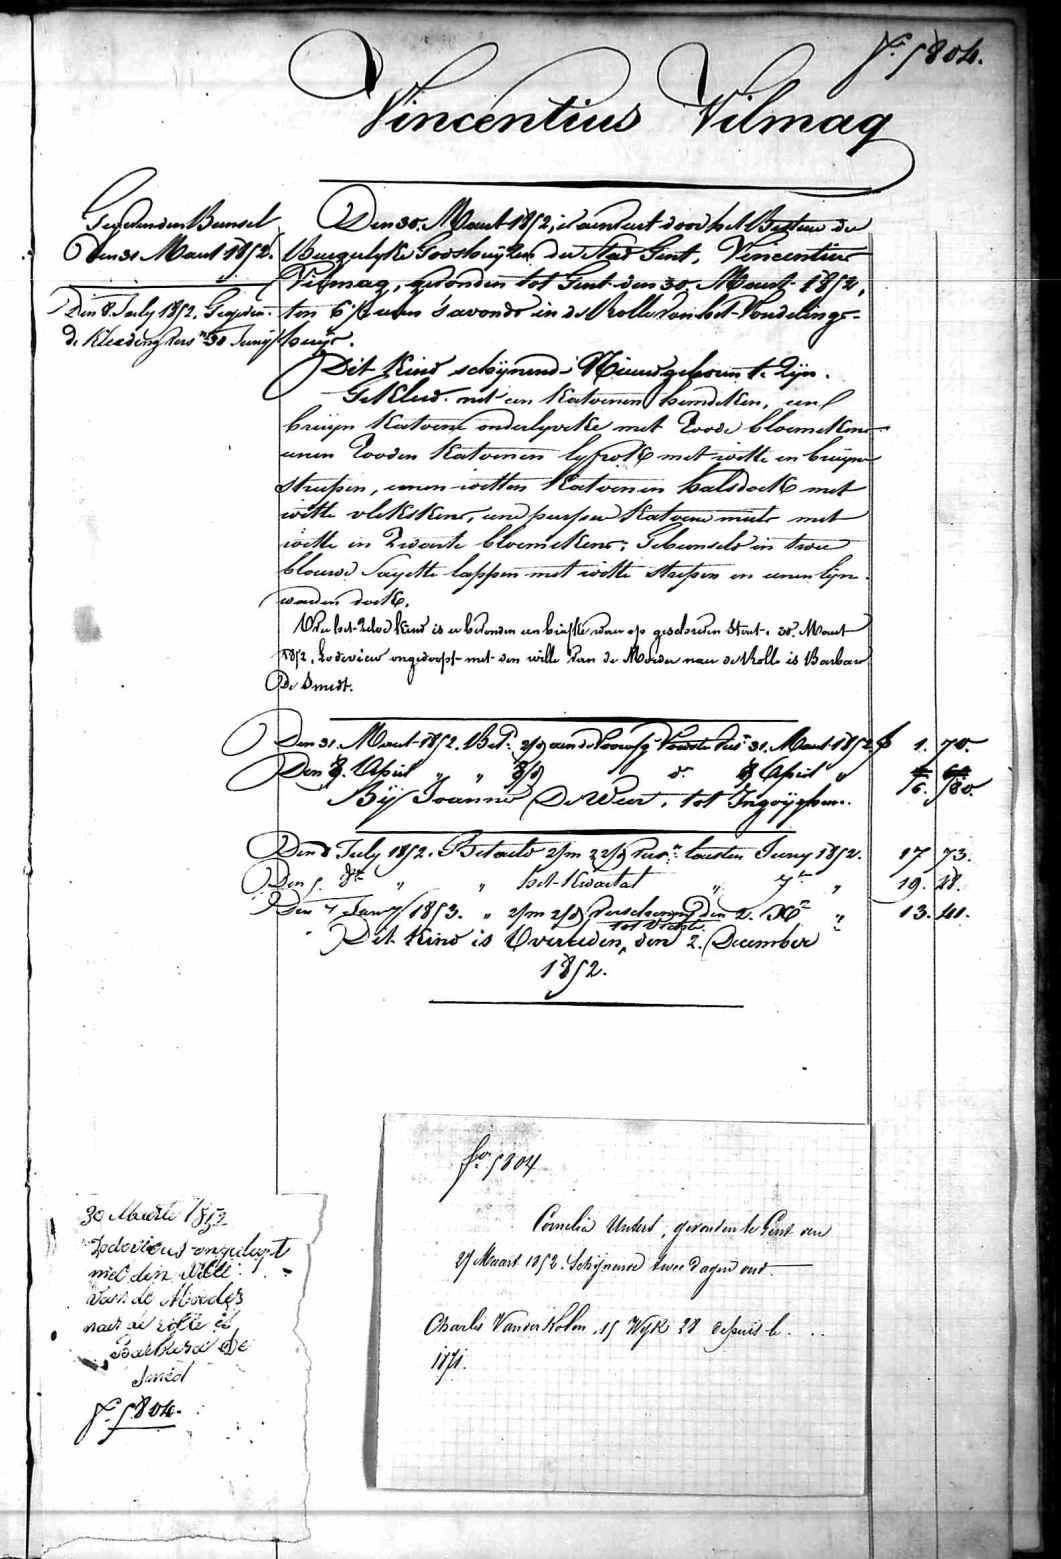 Fo. 5804.
Vincentius Vilmaq
Gegeven den Bunsel
Den 31 Maart 1852.
Den 8. July 1852. Gegeven
de Kleeding 30 Juny
Den 30. Maart 1852, is door het Bestuur der
Burgerlyke Godshuyzen der Stad Gent, Vincentius
Vilmaq, gevonden tot Gent den 30 Maart 1852,
ten 6 1/2 uren s'avonds in de Rolle van het Vondelings-
huys.
Dit Kind schijnend Nieuwgeboren te Zijn.
Gekleed met een Katoenen hemdeken, een
bruijn Katoene onderlyveke met Roode bloemekens
eenen Rooden Katoenen lyfrok met witte en bruijne
streepen, eenen witten Katoenen halsdoek met
witte vlekskens, eene purpere Katoene muts met
witte en Zwarte bloemekens; Gebunseld in twee
blouwe Sayette lappen met witte streepen en eenen lyn-
waeden doek.
Op het Zelve Kind is er bevonden een briefke waer op geschreven Staet. 30. Maart
1852. Lodovicus ongedoopt met den wille van de Moeder naer de Rolle is Barbara
De Smedt.
Den 31. Maart 1852. Bet. 2/9 aen de 31. Maart 1852 f 1. 70.
Den 8. April " " 8/9 d. 8 April "
16. 80.
Bij Joanne De Weert, tot Ingoyghem.
Den 8. July 1852. Betaeld 2/m 22/9 laesten Juny 1852. 17 73.
Den 5. 8re " " het Kwartat " 7re " 19. 28.
Den 7 Janry 1853. " 2/m 2/9 den 2. Xre " 13. 41.
Dit Kind is Overleden, tot Vichte den 2. December
1852.
30 Maarte 1852
Lodovicus ongedopt
met den Wille
van de Moeder
naer de rolle is
Barbara De
Smed
Fo. 5804.
fo. 5804
Cornelia Undert, gevonden te Gent den
27 Maart 1852. Schijnend twee dagen oud.
Charles Vander , 15 Wijk 28 depuis le . . .
1871.